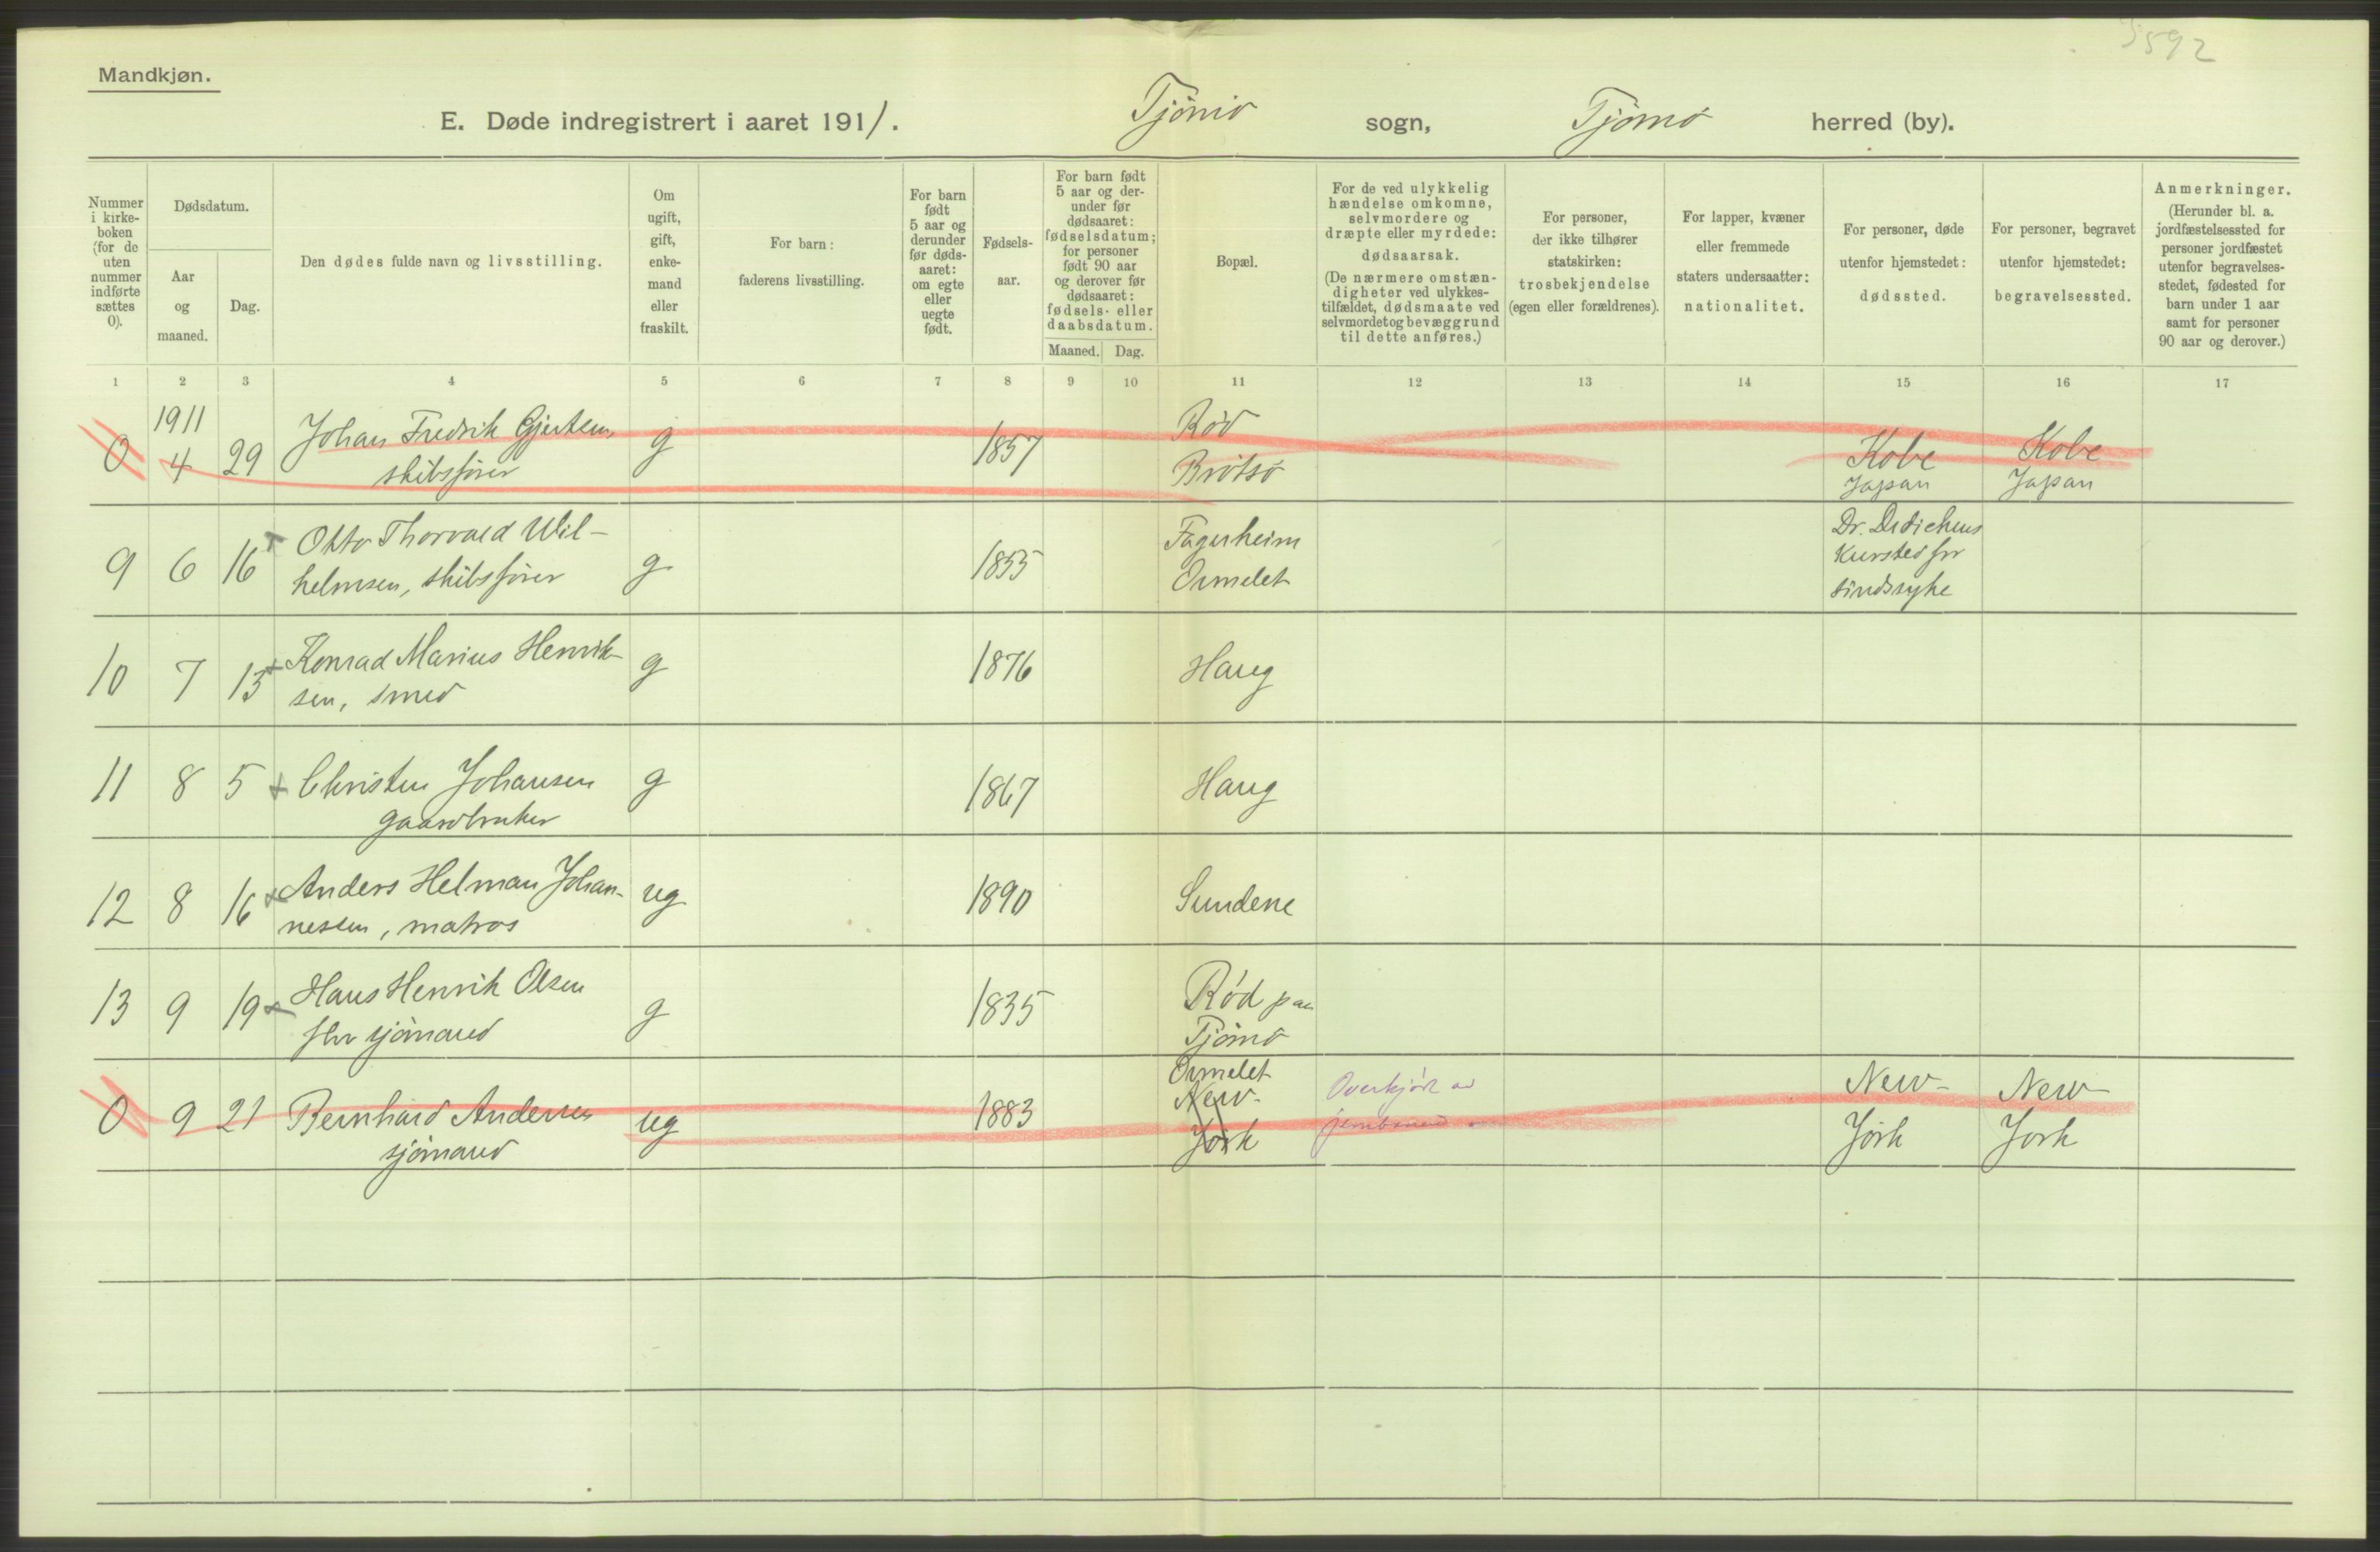 5592
Mandkjøn.
E. Døde indregistrert i aaret 1911. Tjömö sogn, Tjömö herred (by).
Nummer
i kirke-
boken
(for de
uten
nummer
indførte
sættes
0).
Dødsdatum.
Aar
og
maaned.
Dag.
Den dødes fulde navn og livsstilling.
Om
ugift,
gift,
enke-
mand
eller
fraskilt.
For barn:
faderens livsstilling.
For barn
født
5 aar og
derunder
før døds-
aaret:
om egte
eller
uegte
født.
Fødsels-
aar.
For barn født
5 aar og der-
under før
dødsaaret:
fødselsdatum;
for personer
født 90 aar
og derover før
dødsaaret:
fødsels- eller
daabsdatum.
Maaned. Dag.
Bopæl.
For de ved ulykkelig
hændelse omkomne,
selvmordere og
dræpte eller myrdede:
dødsaarsak.
(De nærmere omstæn-
digheter ved ulykkes-
tilfældet, dødsmaate ved
selvmordet og bevæggrund
til dette anføres.)
For personer,
der ikke tilhører
statskirken:
trosbekjendelse
(egen eller forældrenes).
For lapper, kvæner
eller fremmede
staters undersaatter:
nationalitet.
For personer, døde
utenfor hjemstedet:
dødssted.
For personer, begravet
utenfor hjemstedet:
begravelsessted.
Anmerkninger.
(Herunder bl. a.
jordfæstelsessted for
personer jordfæstet
utenfor begravelses-
stedet, fødested for
barn under 1 aar
samt for personer
90 aar og derover.)
1 2 3 4 5 6 7 8 9 10 11 12 13 14 15 16 17
1911
0 4 29 Johan Fredrik Gjertsen, g 1857 Rød Kobe Kobe
skibsfører Brötsö Japan Japan
9 6 16 Otto Thorvald Wil- g 1855 Fagerheim Dr. Dedichens
helmsen, skibsfører Ormelet Kursted for
sindssyke
10 7 13 Konrad Marius Henrik- g 1876 Haug
sen, smed
11 8 5 Christen Johansen g 1867 Haug
gaardbruker
12 8 16 Anders Helman Johan- ug 1890 Sundene
nessen, matros
13 9 19 Hans Henrik Olsen g 1835 Rød paa
fhv sjömand Tjömö
Ormelet
0 9 21 Bernhard Andersen ug 1883 New- Overkjört av New- New
sjömand York jernbane York York